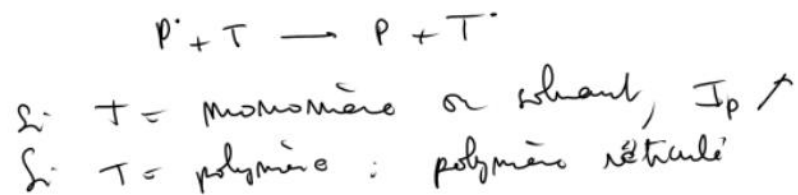 P• + T → P + T•
Si T = monomère ou solvant, Ip ↗
Si T = polymère : polymère réticulé